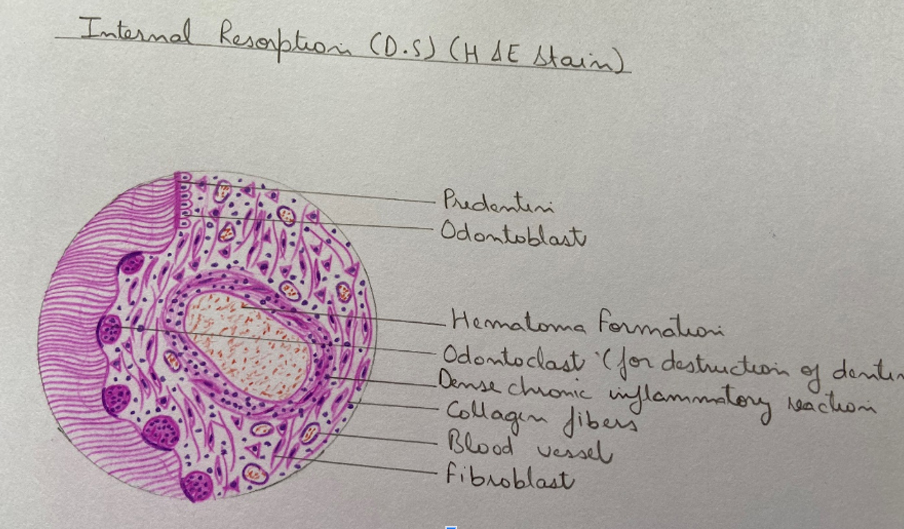 Internal Resorption (D.S) (H &E Stain)
Predentin
Odontoblast
Hematoma Formation
Odontoclast (for destruction of dentin
Dense chronic inflammatory reaction
Collagen fibers
Blood vessel
Fibroblast